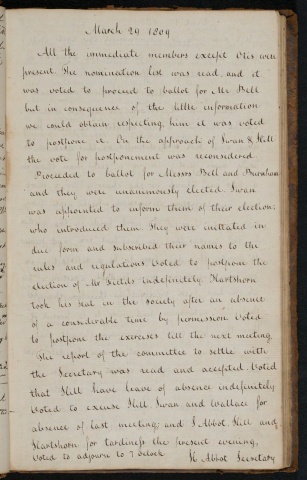 March 29 1809
All the immediate members except Otis were
present. The nomination list was read, and it
was voted to proceed to ballot for Mr Bell
but in consequence of the little information
we could obtain respecting, him it was voted
to postpone it. On the approach of Swan & Hill
the vote for postponement was reconsidered
Proceeded to ballot for Messrs Bell and Burnham
and they were unanimously elected. Swan
was appointed to inform them of their election;
who introduced them. They were initiated in
due form and subscribed their names to the
rules and regulations. Voted to postpone the
election of Mr Fields indefinitely. Hartshorn
took his seat in the Society after an absence
of a considerable time by permission. Voted
to postpone the exercises till the next meeting.
The report of the committee to settle with
the Secretary was read and accepted. Voted
that Hill have leave of absence indefinitely
Voted to excuse Hill Swan and Wallace for
absence of last meeting; and J Abbot Hill and
Hartshorn for tardiness the present evening.
Voted to adjourn to 7 oclock
H Abbot Secretary